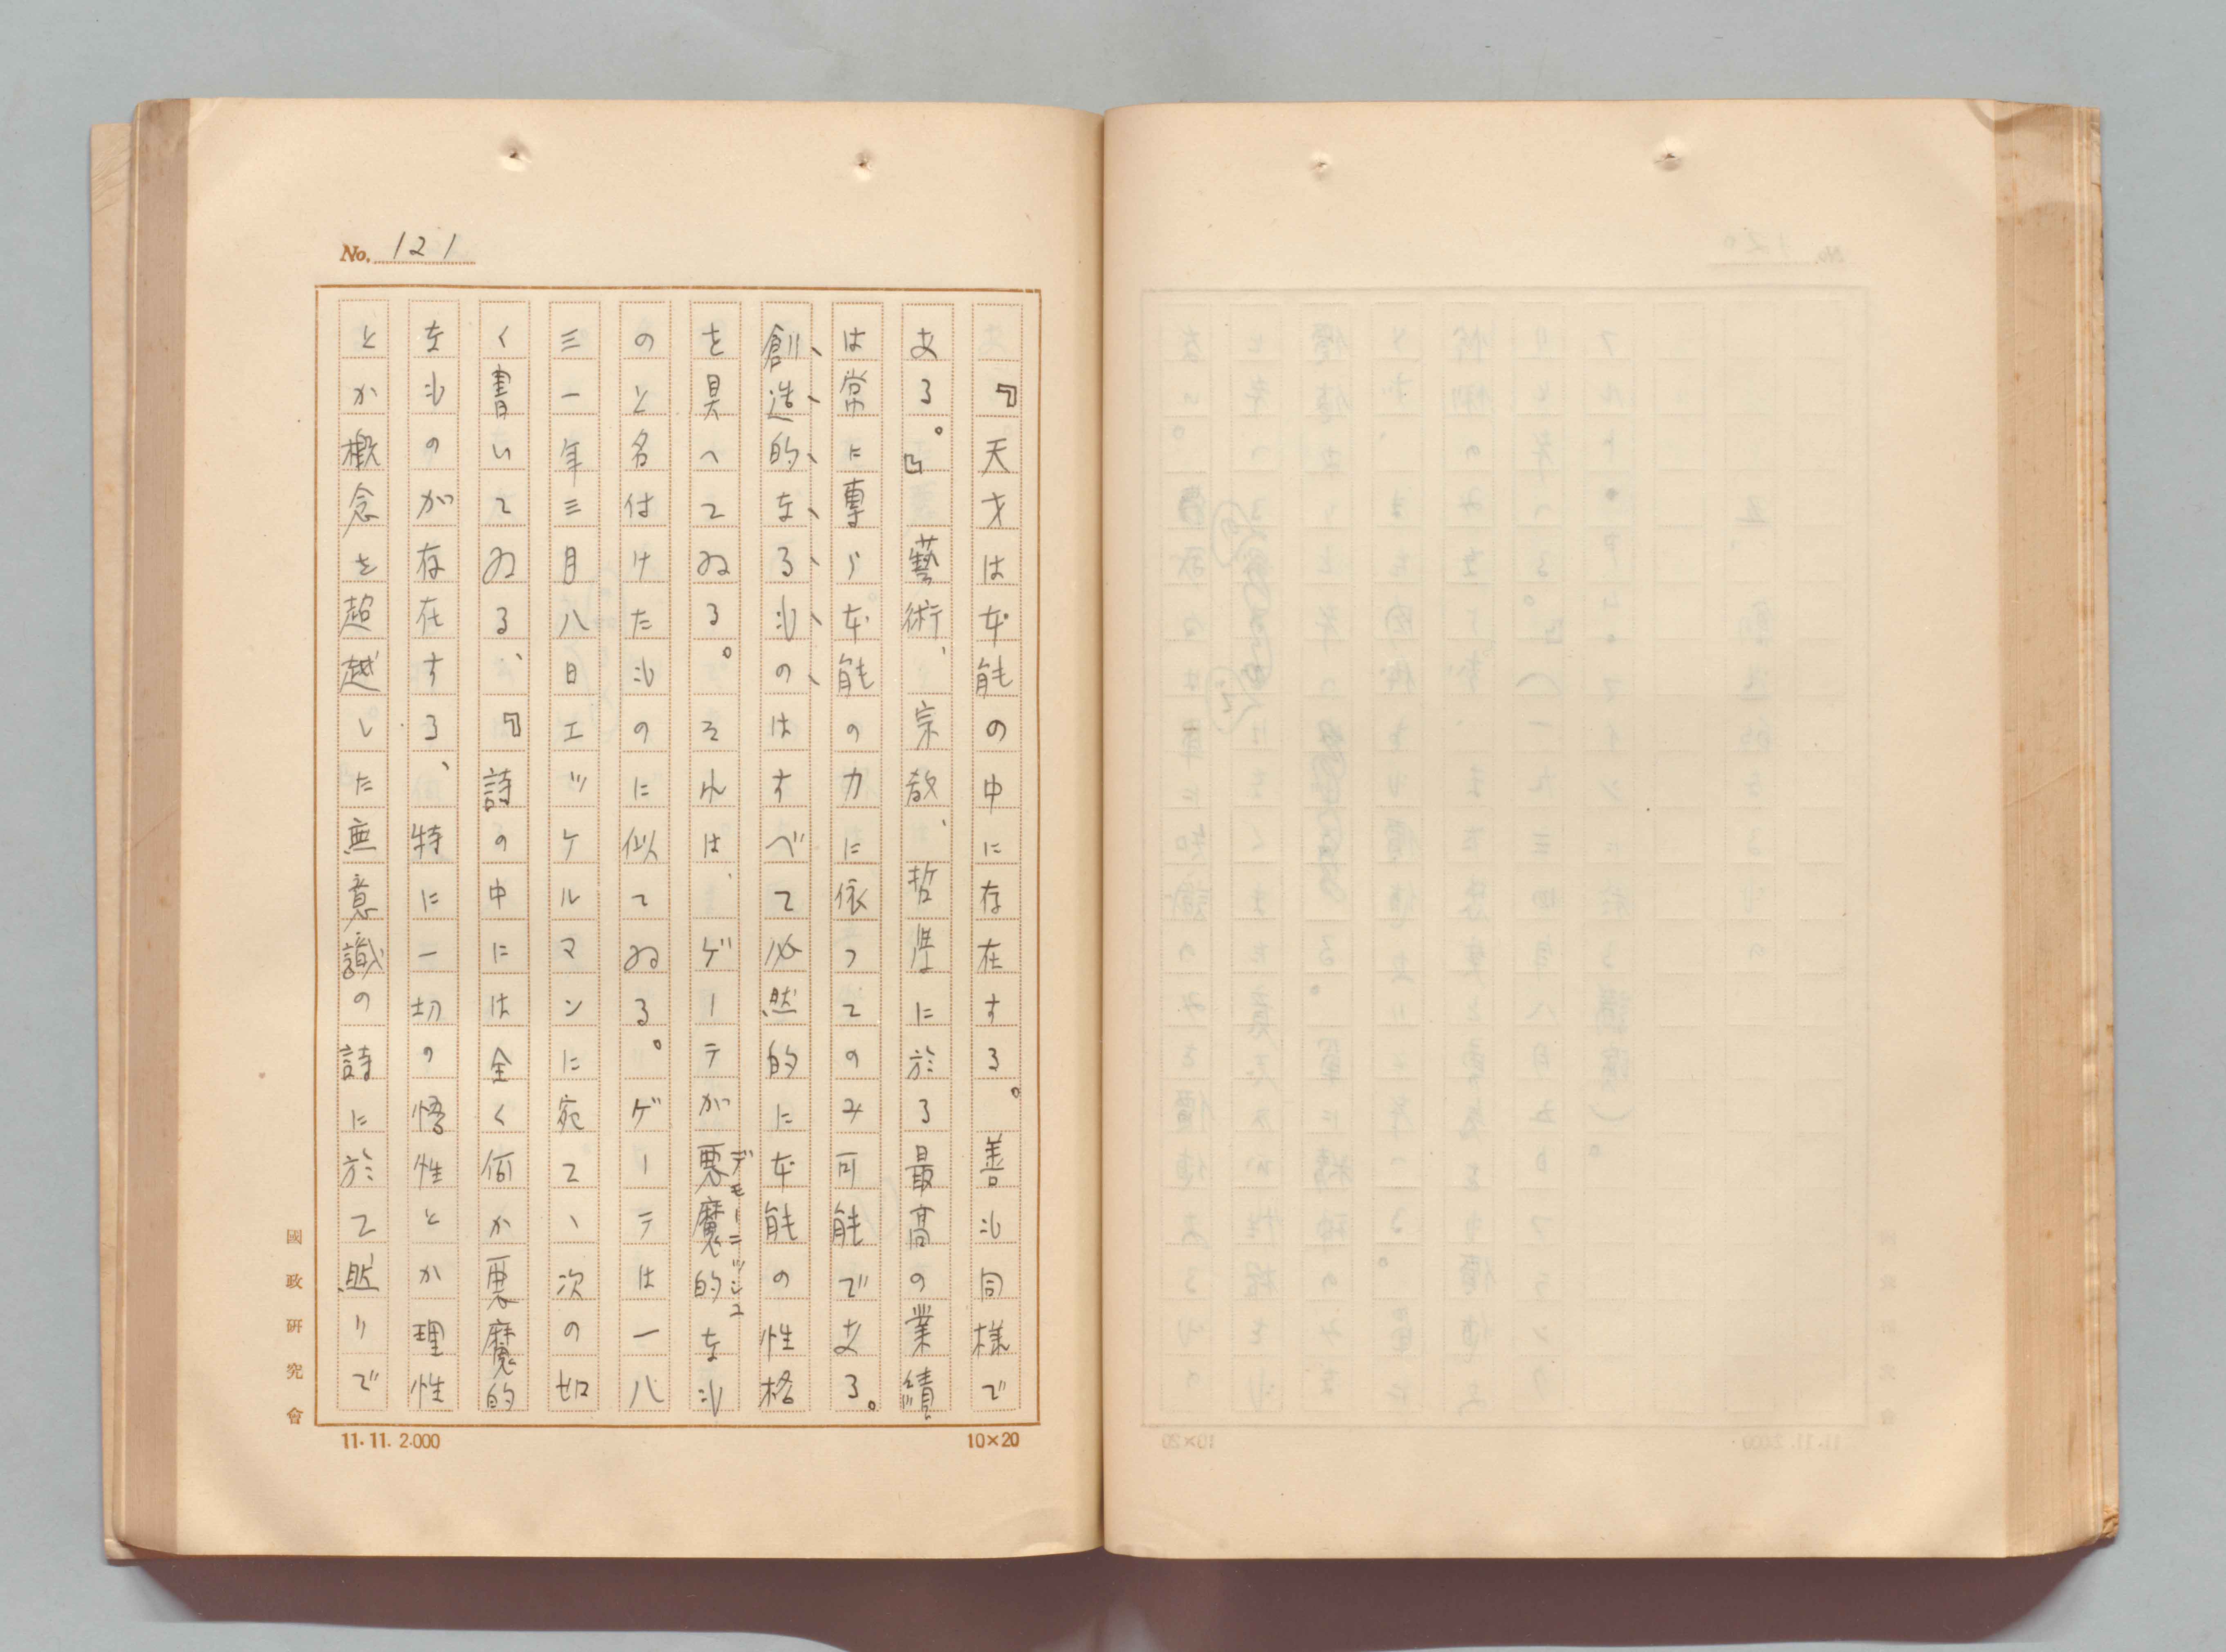 No. 121
『天才は本能の中に存在する。善も同様で
ある。』藝術、宗教、哲学に於る最高の業績
は常に専ら本能の力に依つてのみ可能である。
創造的なるものはすべて必然的に本能の性格
を具へてゐる。それは、ゲーテが悪魔的なも
デモーニッシュ
のと名付けたものに似てゐる。ゲーテは一八
三一年三月八日エッケルマンに宛てゝ次の如
く書いてゐる、『詩の中には全く何か悪魔的
なものが存在する、特に一切の悟性とか理性
とか概念を超越した無意識の詩に於て然りで
國政研究會
11.11.2.000
10×20